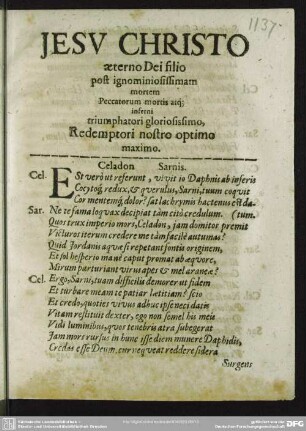 1137.
JESV CHRISTO
æterno Dei filio
post ignominiosissimam
mortem
Peccatorum mortis atq;
inferni
triumphatori gloriosissimo,
Redemptori nostro optimo
maximo.
Celadon Sarnis.
Cel. Est verò ut referunt, vivit io Daphnis ab inferis
Cocytoq; redux, & querulus, Sarni, tuum coquit
Cor mentemq; dolor? sat lachrymis hactenus est da-
Sar. Ne te fama loquax decipiat tàm citò credulum. (tum.
Quos trux imperio mors, Celadon, jam domitor premit
Victuros iterum credere me tàm facilè autumas?
Quid Jordanis aquæ si repetant fontis originem,
Et sol hesperio manè caput promat ab æquore,
Mirum parturiant vitus apes & mel araneæ?
Cel. Ergo, Sarni, tuam difficilis demorer ut fidem
Et turbare meam te patiar lætitiam? scio
Et credo, quoties vivus adhuc ipse neci datis
Vitam restituit dexter, ego non semel his meis
Vidi luminibus, quos tenebris atra subegerat
Jam mors rursus in hunc isse diem munere Daphidis,
Credas esse Deum, cur nequeat reddere sidera
Surgens